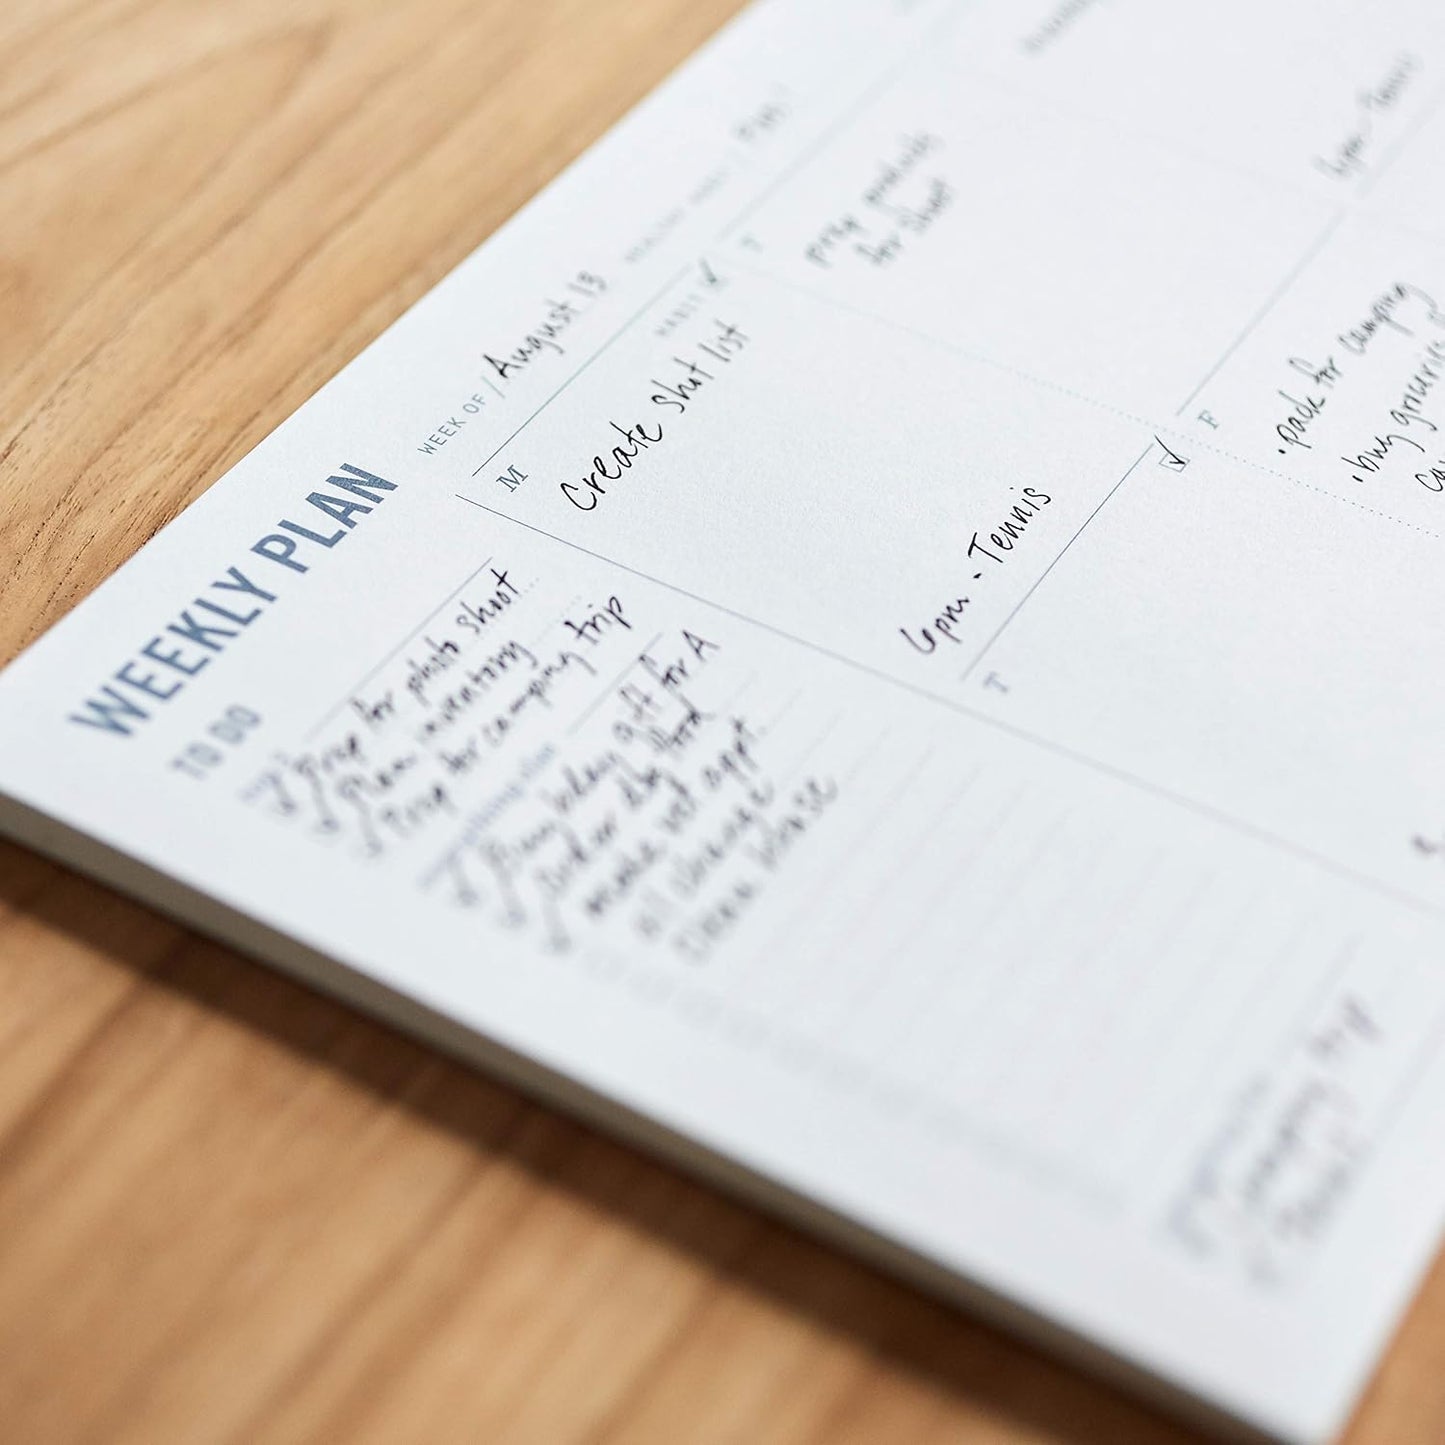 WEEKLY PLAN
WEEK OF / August 13
HEALTHY HABIT /
TO DO
Prep for photo shoot
Plan inventory
Prep for camping trip
Buy bday gift for A
order dog food
make vet appt.
oil change
clean house
M
HABIT
Create shot list
6pm - Tennis
T
prep products
for shoot
6pm - Tennis
T
F
• pack for camping
• buy groceries
camping trip